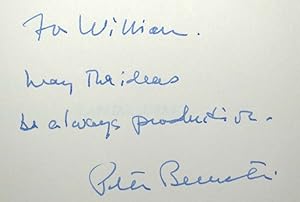 For William.
may the ideas
be always productive.
Peter